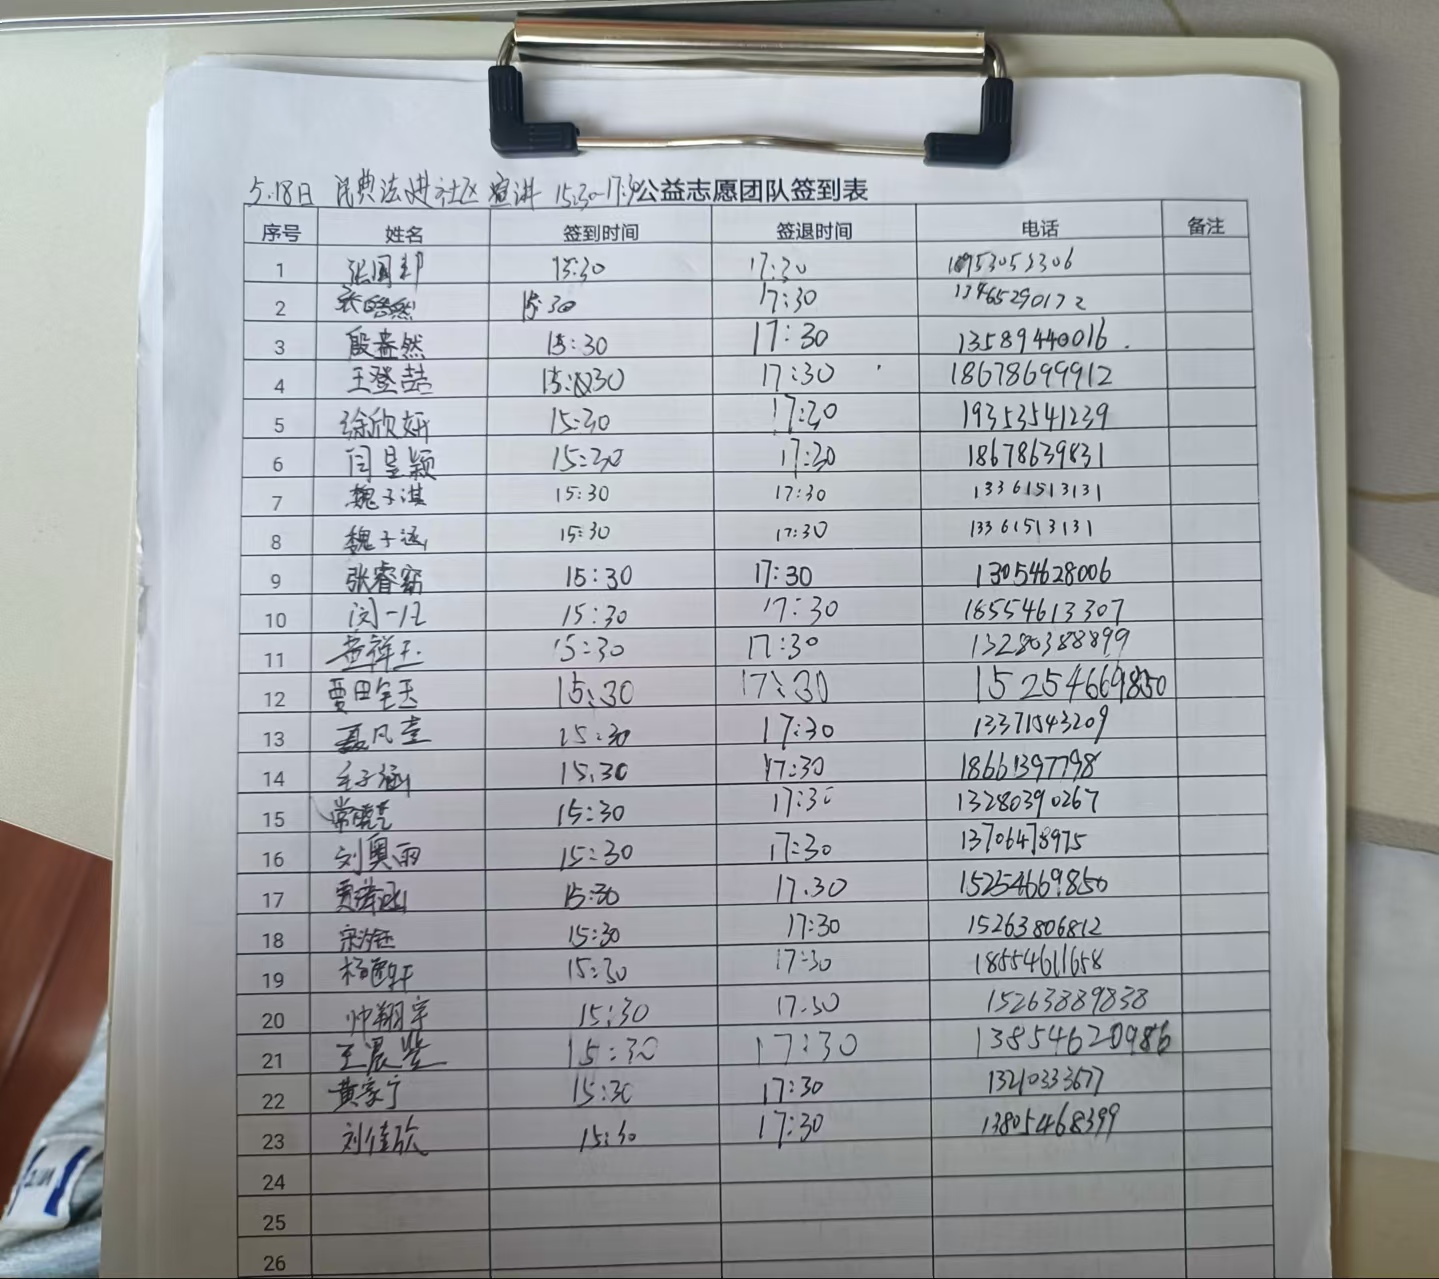 5.18日 民典法进社区 宣讲 15:30-17:30公益志愿团队签到表
序号 姓名 签到时间 签退时间 电话 备注
1 15:30 17:30
2 张皓然 15:30 17:30 13465290172
3 殷睿然 15:30 17:30 13589440016
4 王登喆 15:30 17:30 18678699912
5 徐欣妍 15:30 17:30 19353541239
6 闫星颖 15:30 17:30 18678639831
7 魏子淇 15:30 17:30 13361513131
8 魏子涵 15:30 17:30 13361513131
9 张睿 15:30 17:30 13054628006
10 15:30 17:30 18554613307
11 祥玉 15:30 17:30 13280388899
12 贾田 15:30 17:30 15254669850
13 聂凡 15:30 17:30 13371543209
14 毛子涵 15:30 17:30 18661397798
15 常 15:30 17:30 13280390267
16 刘奥雨 15:30 17:30 13706478975
17 贾 15:30 17:30 15254669850
18 宋 15:30 17:30 15263806812
19 杨 轩 15:30 17:30 18554611658
20 帅翔宇 15:30 17:30 15263889838
21 王晨 15:30 17:30 13854620986
22 黄家宁 15:30 17:30 13210333677
23 刘佳欣 15:30 17:30 13805468399
24
25
26